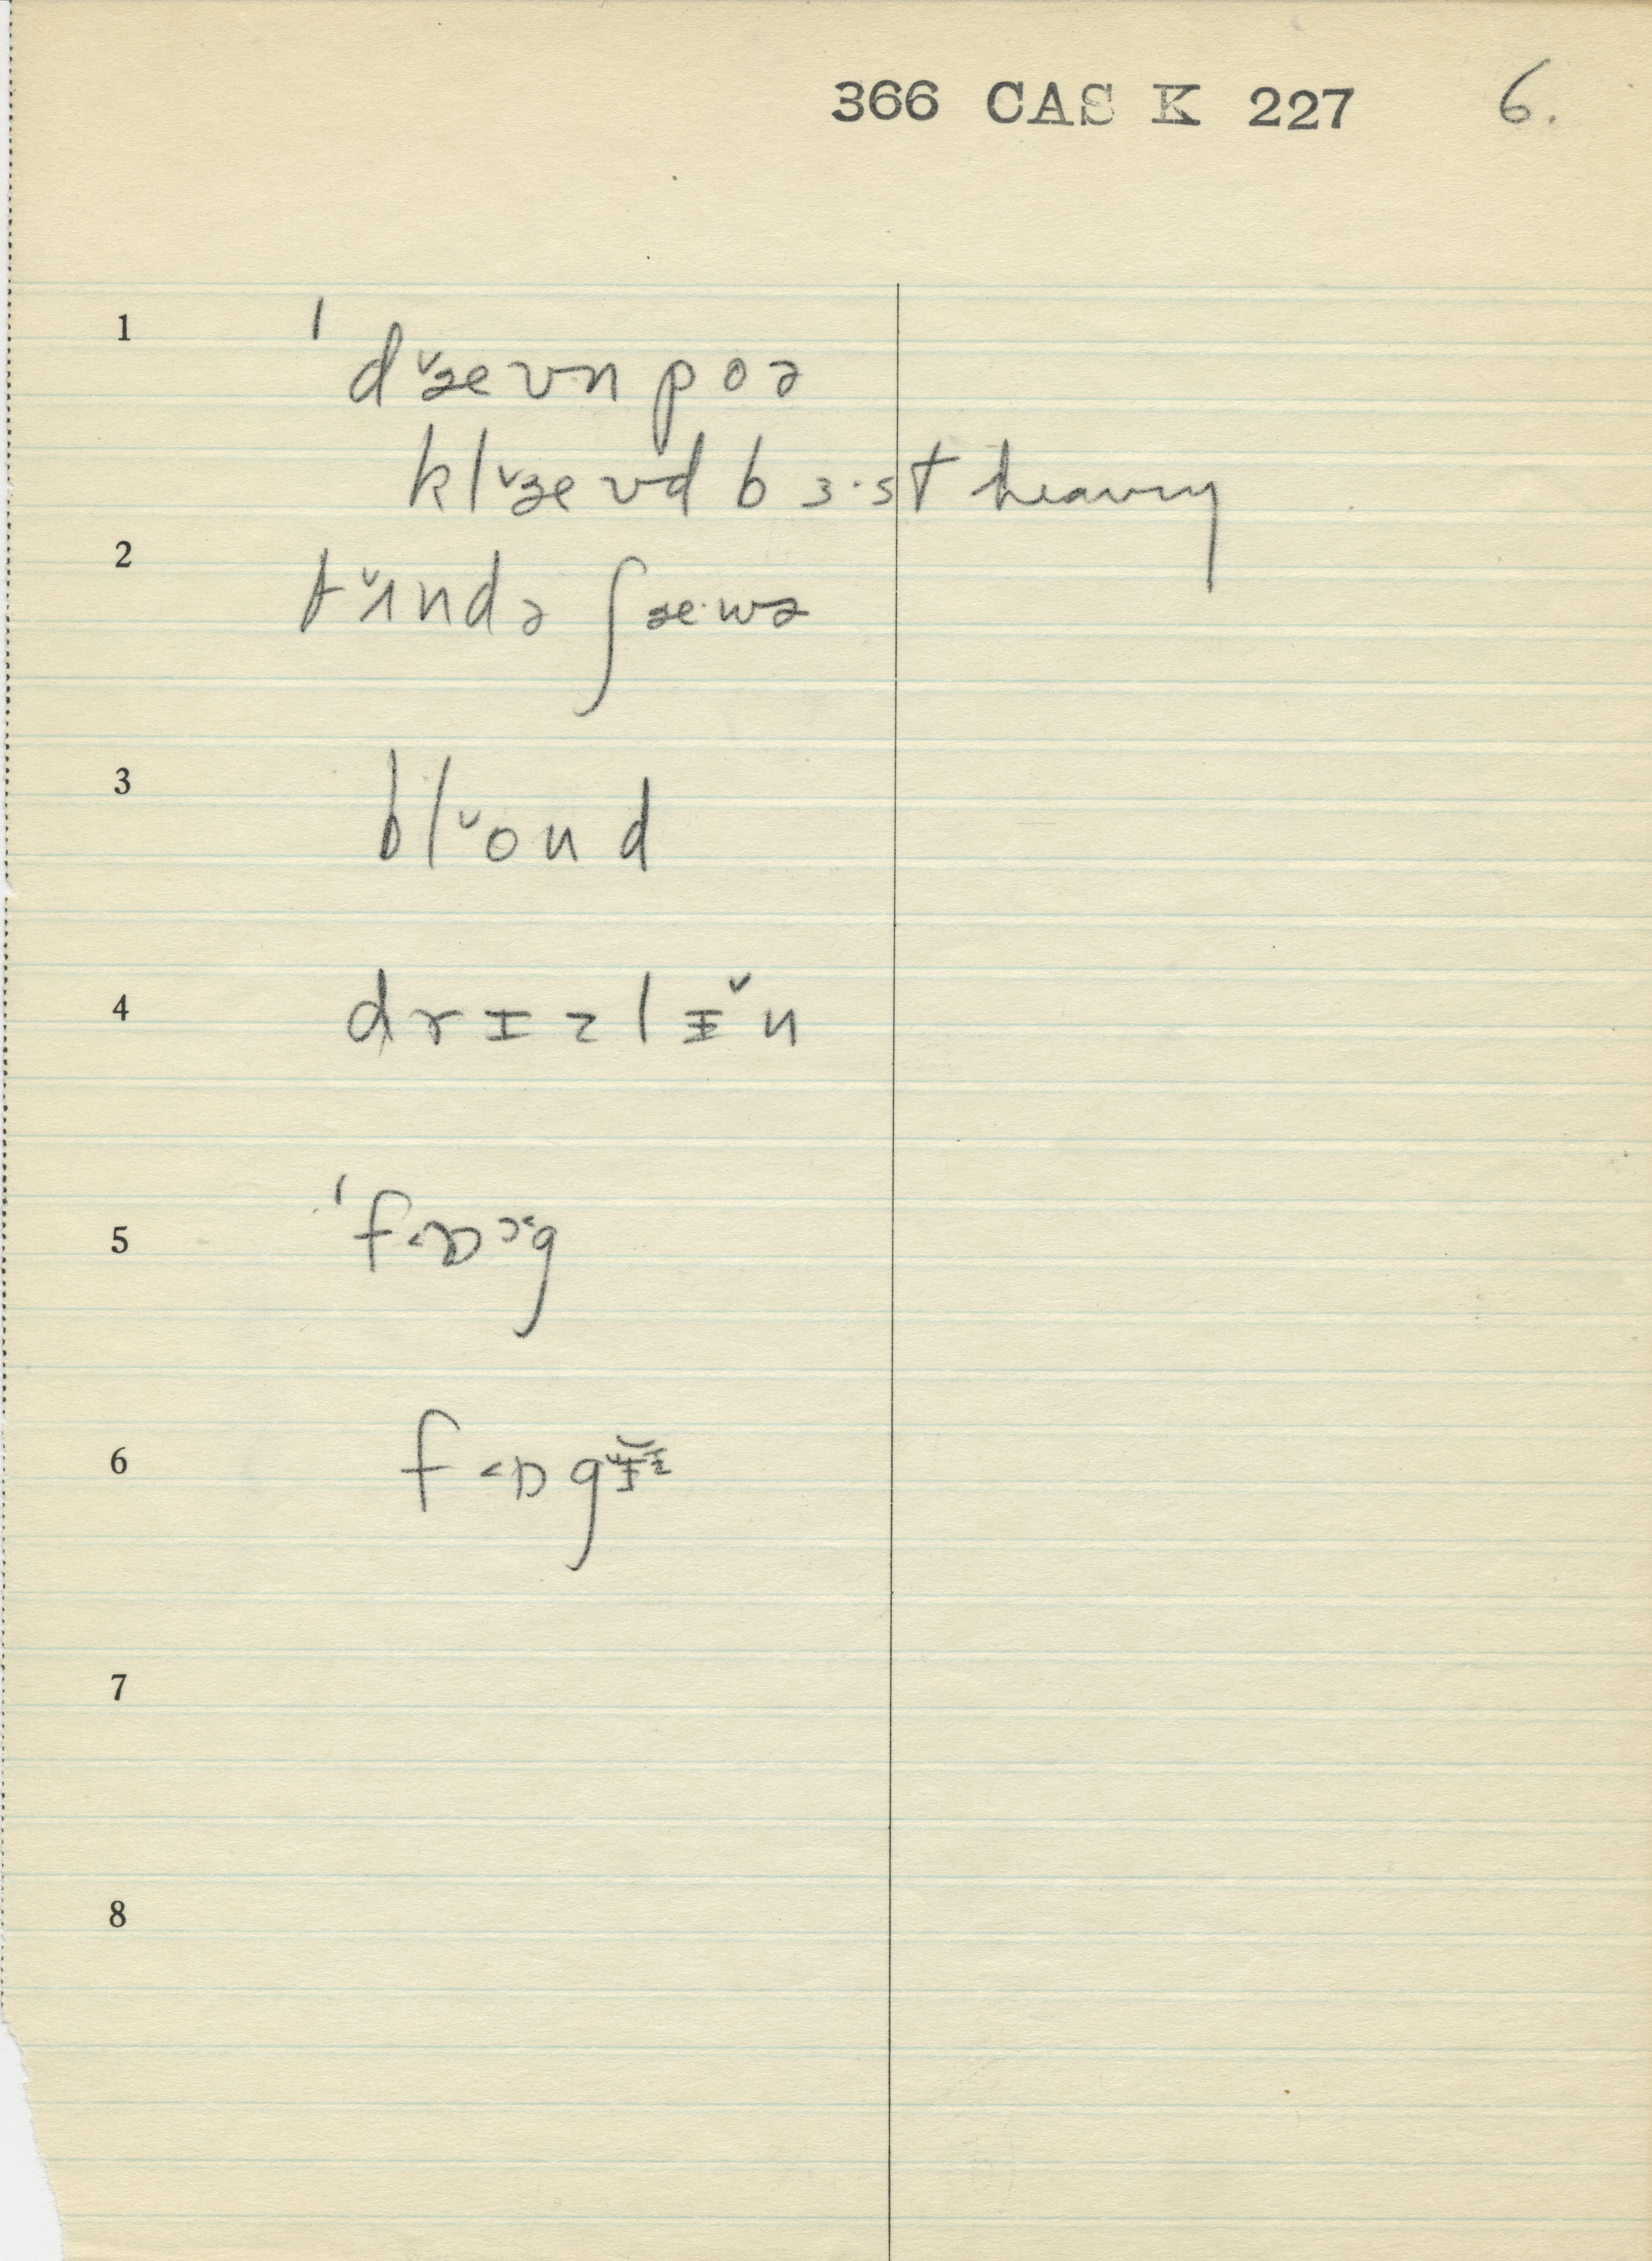 366 CAS K 227 6.
1 ˈdˇæʊnpoə
klˇæʊdbɜ·st heavy
2 tˇʌndə ʃæ·wə
3 blˇond
4 drɪzlɪˇn
5
6
7
8